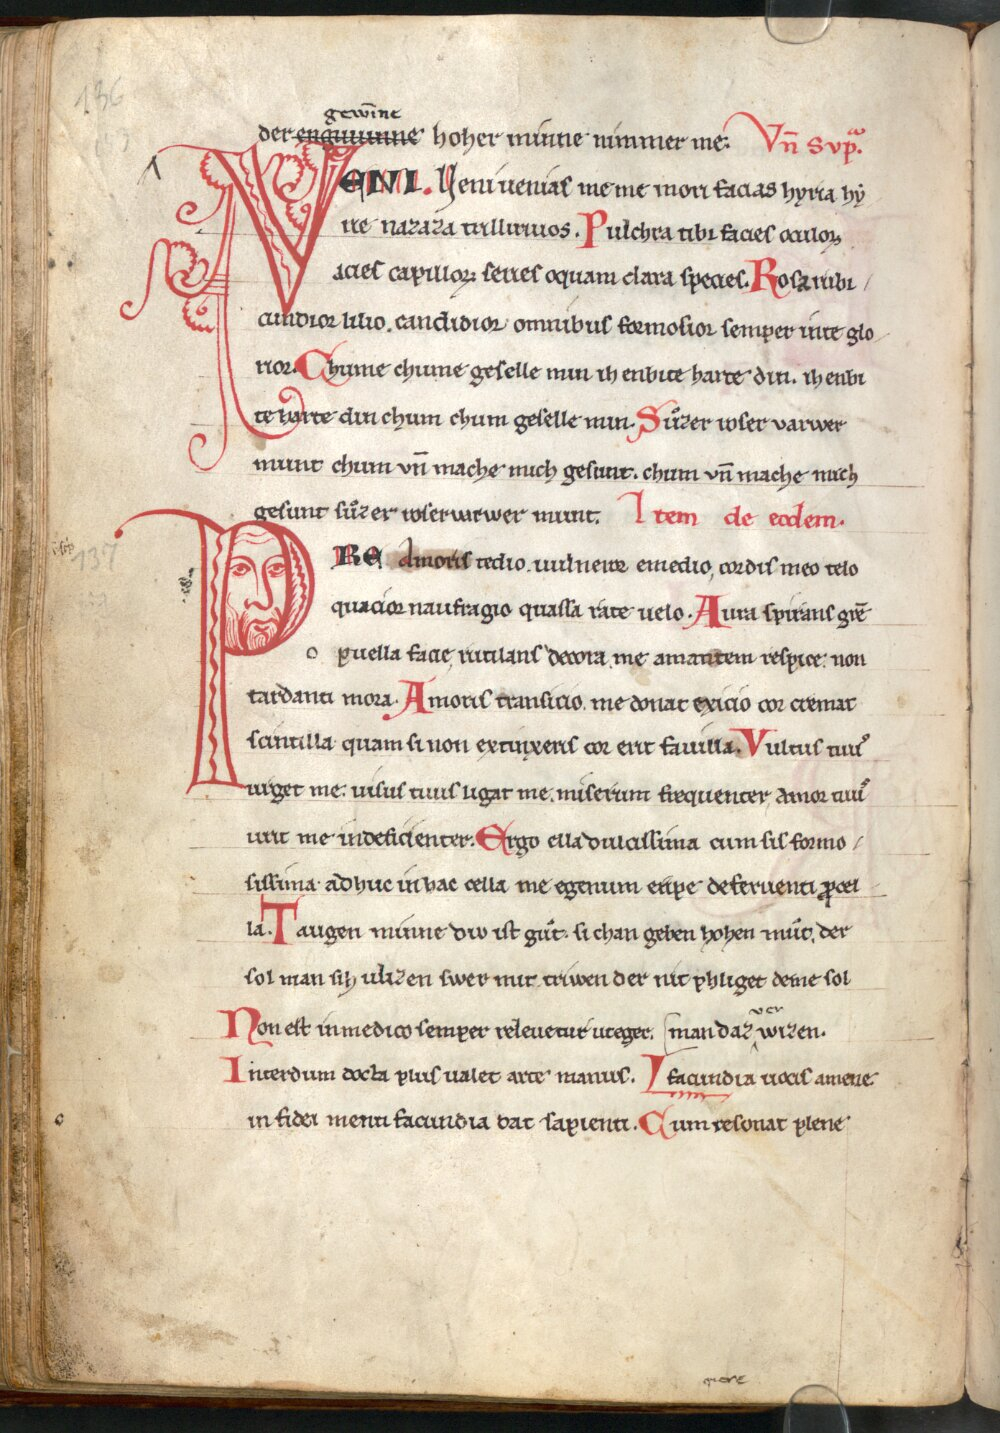 136
gewīne
der enguuinne hoher minne nimmer me. Vn̄ supᵃ.
VENI. Veni uenias me me mori facias hyria hẏ
rie nazaza trillirivos. Pulchra tibi facies oculoꝝ
acies capilloꝝ series o quam clara species. Rosa rubi
cundior lilio. candidior omnibus formosior semper in te glo
rior. Chume chume geselle min ih enbite harte din. ih enbi
te harte din chum chum geselle min. Suͦzer roser varwer
munt chum vn̄ mache mich gesunt. chum vn̄ mache mich
gesunt suͦzer roservarwer munt. Item de eodem.
137
PRE Amoris tedio. uulneror emedio, cordis meo telo
quacior naufragio quassa rate uelo. Aura spirans grē
o puella facie, rutilans decora. me amantem respice. non
tardanti mora. Amoris transicio. me donat exicio cor cremat
scintilla quam si non extinxeris cor erit fauilla. Vultus tuus
urget me. uisus tuus ligat me. miserum frequenter amor tuus
urit me indeficienter. Ergo ella dulcissima cum sis formo
sissima adhuc in hac cella me egenum eripe deferuenti ꝓcel
la. Taugen minne div ist guͦt. si chan geben hohen muͦt, der
sol man sih vlizen swer mit triwen der nit phliget deme sol
Non est in medico semper releuetur ut eger. man daz ver wizen.
Interdum docta plus ualet arte manus. L facundia uocis amene
in fidei menti facundia dat sapienti. Cum resonat plene